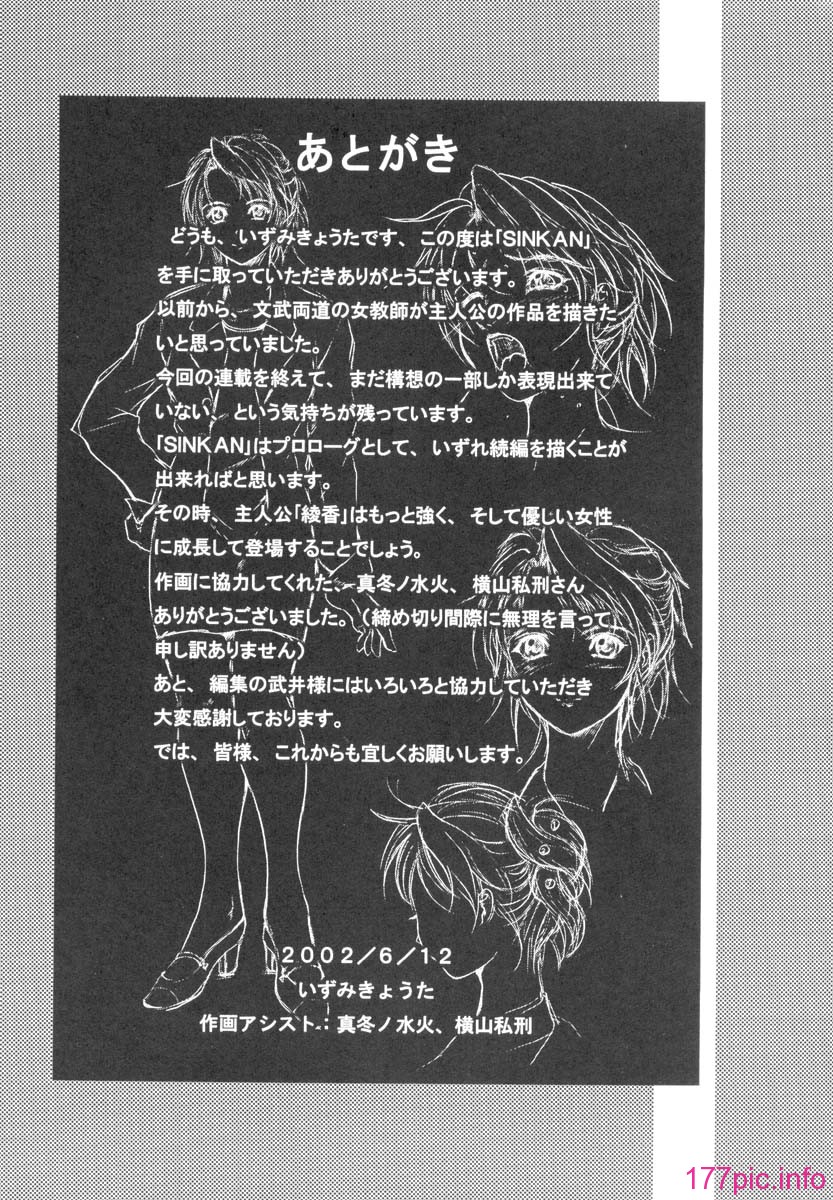 あとがき
どうも、いずみきょうたです、この度は「SINKAN」
を手に取っていただきありがとうございます。
以前から、文武両道の女教師が主人公の作品を描きた
いと思っていました。
今回の連載を終えて、まだ構想の一部しか表現出来て
いない、という気持ちが残っています。
「SINKAN」はプロローグとして、いずれ続編を描くことが
出来ればと思います。
その時、主人公「綾香」はもっと強く、そして優しい女性
に成長して登場することでしょう。
作画に協力してくれた、真冬ノ水火、横山私刑さん
ありがとうございました。（締め切り間際に無理を言って
申し訳ありません）
あと、編集の武井様にはいろいろと協力していただき
大変感謝しております。
では、皆様、これからも宜しくお願いします。
2002／6／12
いずみきょうた
作画アシスト：真冬ノ水火、横山私刑
177pic.info